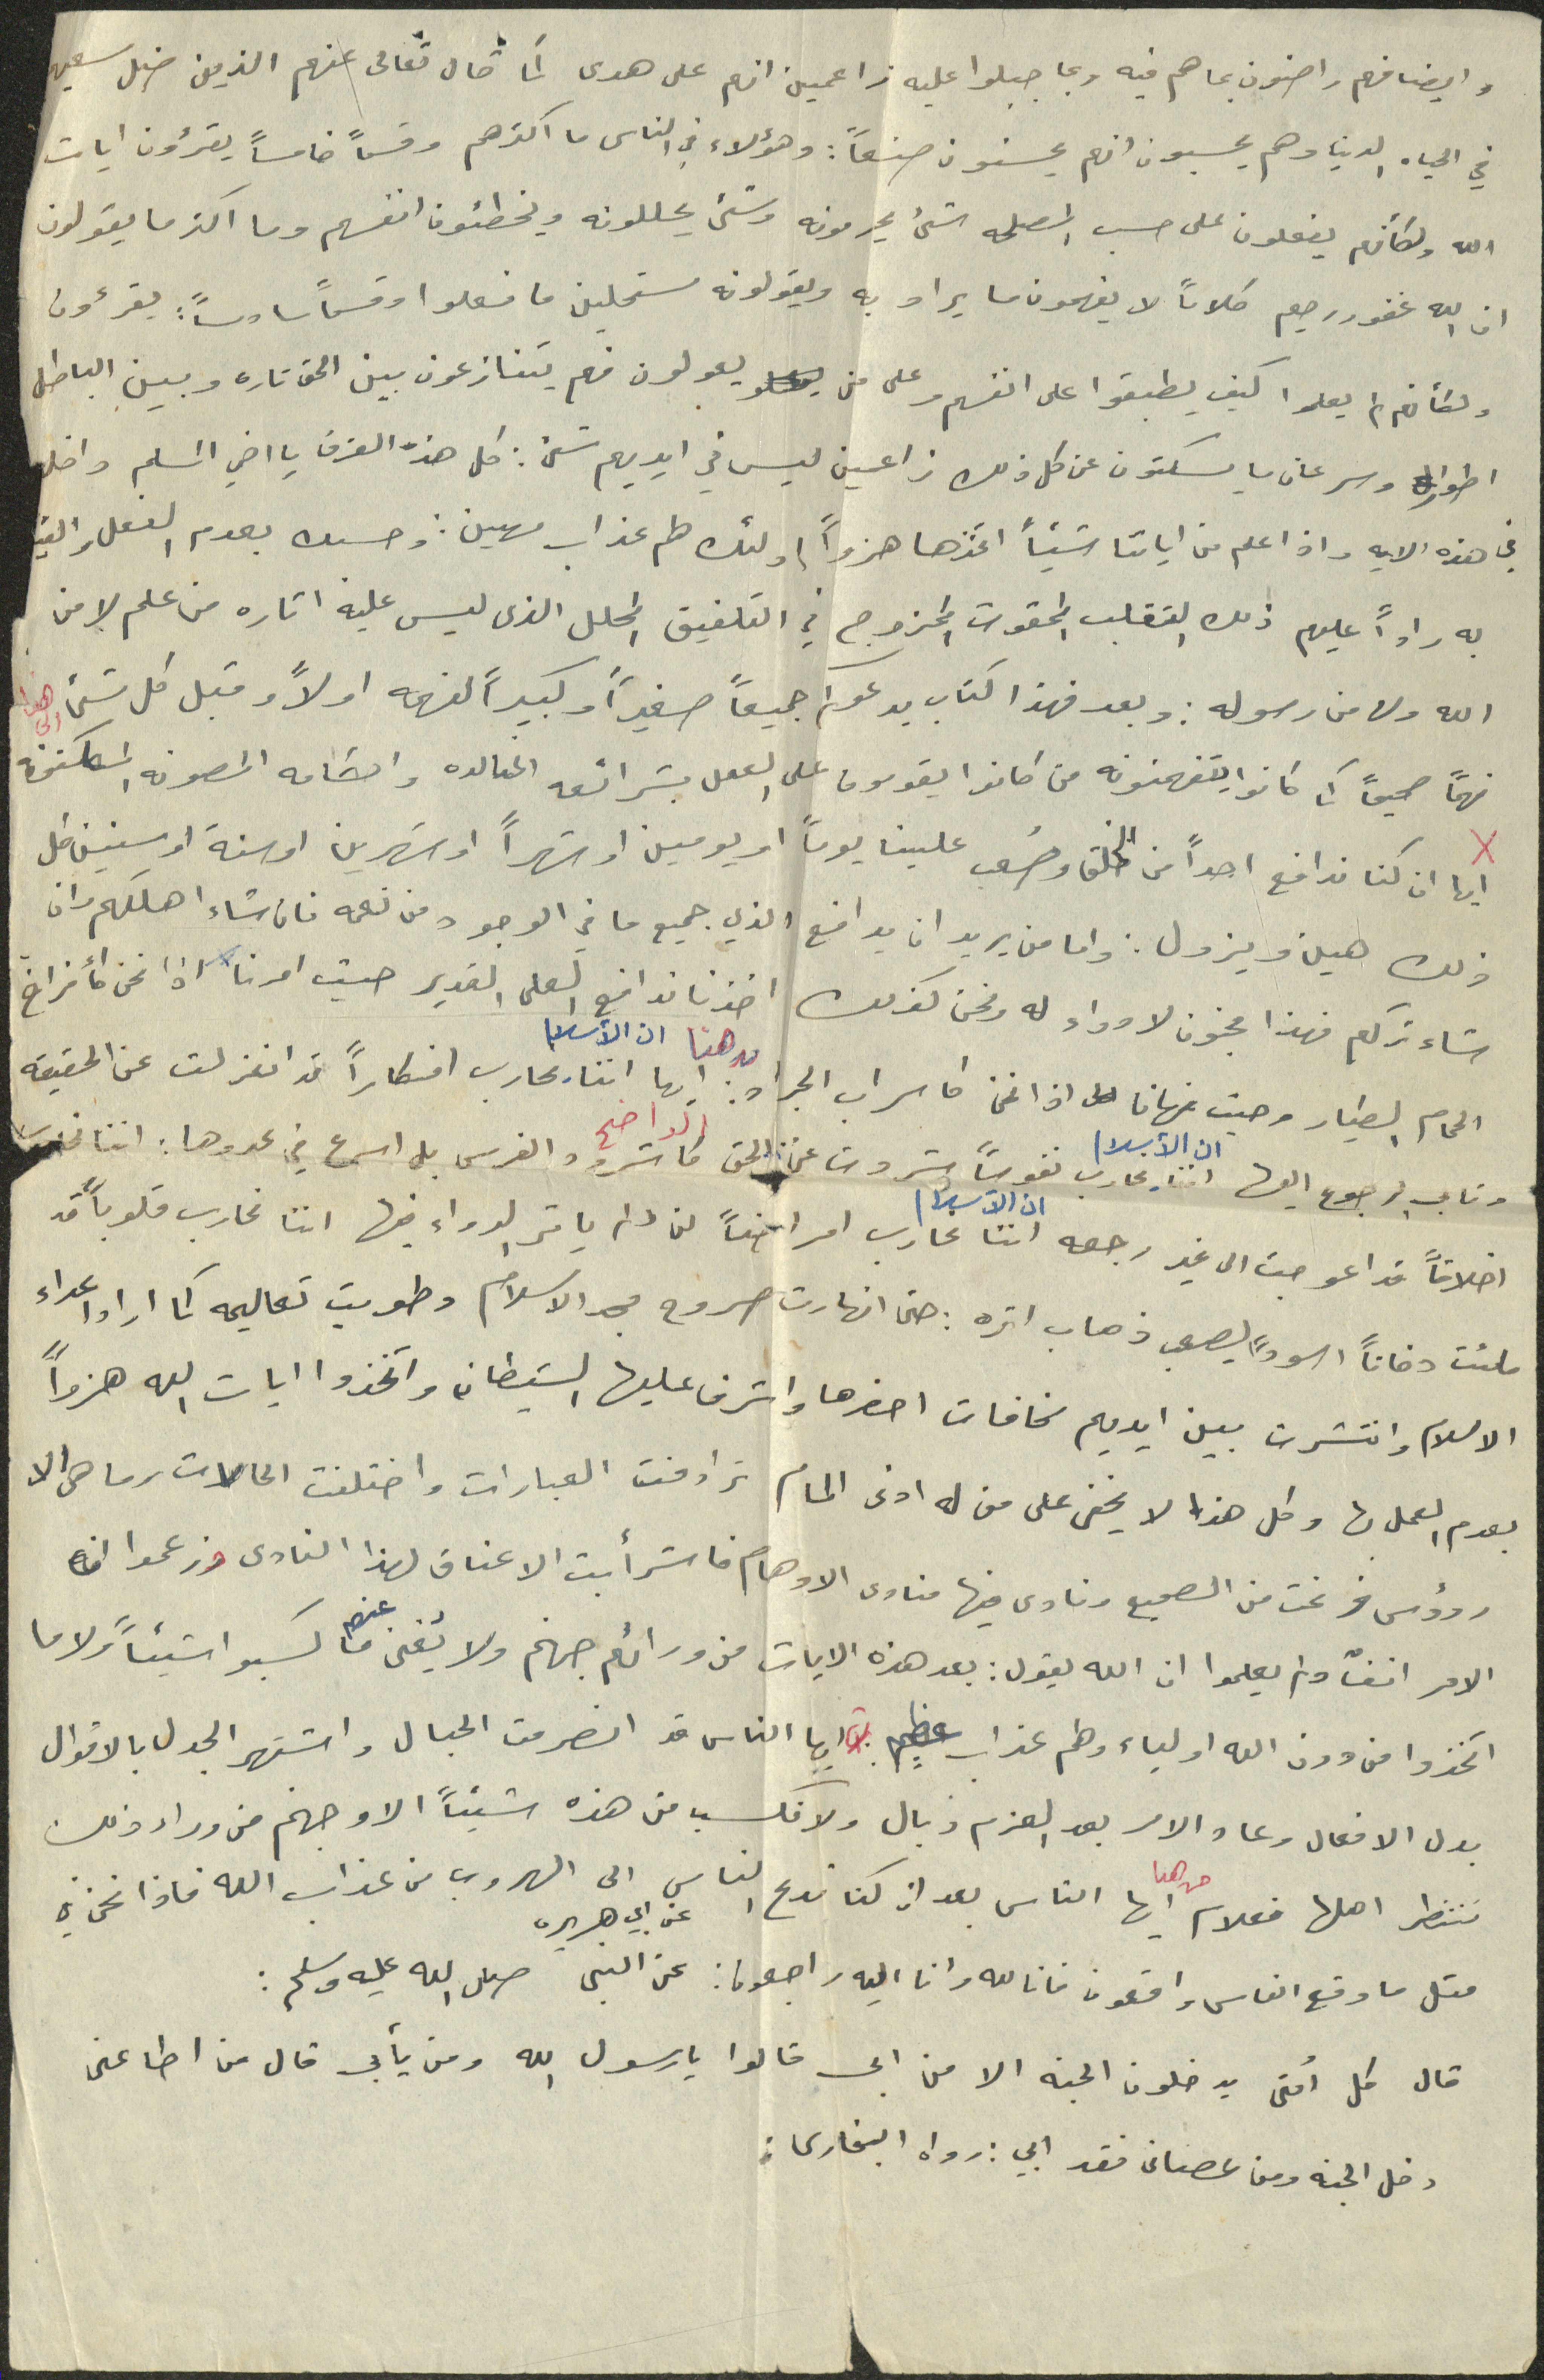 وايضا فهم راضون بما هم فيه وبما جبلوا عليه زاعمين انهم على هدى كما قال تعالى عنهم الذين ضل سعيهم
في الحياه الدنيا وهم يحسبون انهم يحسنون صنعاً: وهؤلاء في الناس ما اكثرهم وقسماً خامساً يقرؤون ايات
الله ولكنهم يفعلون على حسب المصلحه شئ يحرمونه وشئ يحللونه ويخطئون انفسهم وما اكثر ما يقولون
ان الله غفور رحيم كلاماً لا يفهمون ما يراد به ويقولونه مستحلين ما فعلوا وقسماً سادساً: يقرءون
ولكنهم لم يعلموا كيف يطبقوا على انفسهم وعلى من يعولون فهم يتنازعون بين الحق تاره وبين الباطل
اطوارا وسرعان ما يسكتون عن كل ذلك زاعمين ليس في ايديهم شئ: كل هذه الفرق يا اخي المسلم داخله
في هذه الايه واذا علم من اياتنا شيئاً اتخذها هزواً اولئك لهم عذاب مهين: وحسبك بعدم الفعل والقيام
به راداً عليهم ذلك التقلب الممقوت الممزوج في التلفيق المحلل الذى ليس عليه اثاره من علم لا من
الله ولا من رسوله: وبعد فهذا كتاب يدعوكم جميعاً صغيراً وكبيراً لفهمه اولاً وقبل كل شئ الى هنا
فهماً صحيحاً كما كانوا يتفهمونه من كانوا يقومون على العمل بشرائعه الخالده واحكامه المصونه المكنونه
X ايها ان كنا ندافع احداً من الخلق وصُعب علينا يوماً او يومين او شهراً او شهرين او سنة او سنين كل
ذلك هين ويزول: واما من يريد ان يدافع الذي جميع ما في الوجود من نعمه فان شاء اهلكهم وان
شاء تركهم فهذا مجنون لا دواء له ونحن كذلك اخذنا ندافع العلى القدير حيث امرنا اذا نحن كأفراخ
من هنا ان الأسلام
الحمام الطيار وحيث نهانا اذا نحن كاسراب الجراد: ايها اننا نحارب افكاراً قد انعزلت عن الحقيقه
ان الأسلام الواضح
وتأبى الرجوع اليها اننا نحارب نفوساً شردت عن الحق كاشرود الفرس بل اسرع في عدوها: اننا نحارب
ان الأسلام
اخلاقاً قد اعوجت الى غير رجعه اننا نحارب امراضاً لن يأثر الدواء فيها اننا نحارب قلوباً قد
ملئت دخاناً اسوداً يصعب ذهاب اثره: حتى انهارت صروح مجد الاسلام وطويت تعاليمه كما اراد اعداء
الاسلام وانتشرت بين ايديهم خرافات احضرها واشرف عليها الشيطان واتخذوا ايات الله هزواً
بعدم العمل بها وكل هذا لا يخفى على من له ادنى المام ترادفت العبارات واختلفت الحالات وما هي الا
رؤس فرغت من الصحيح ونادى فيها منادى الاوهام فاشرأبت الاعناق لهذا النادى وزعموا ان
الامر انفٌ ولم يعلموا ان الله يقول: بعد هذه الايات من ورائهم جهنم ولا يُغنى عنهم ما كسبوا شيئاً ولا ما
اتخذوا من دون الله اولياء ولهم عذاب عظيم: ايها الناس قد انصرمت الحبال واشتهر الجدل بالاقوال
بدل الافعال وعاد الامر بعد العزم وبال ولا نكسب من هذه شيئاً الا وجهنم من وراء ذلك
من هنا
تنتظر اهلها فعلام ايها الناس بعد ان كنا ندع الناس الى الهروب من عذاب الله فاذا نحن في
مثل ما وقع الناس واقعون فانا لله وانا اليه راجعون: عن ابي هريره عن النبي صلى الله عليه وسلم:
قال كل اُمتى يدخلون الجنه الا من ابى قالوا يا رسول الله ومن يأبى قال من اطاعنى
دخل الجنه ومن عصانى فقد ابي: رواه البخارى: